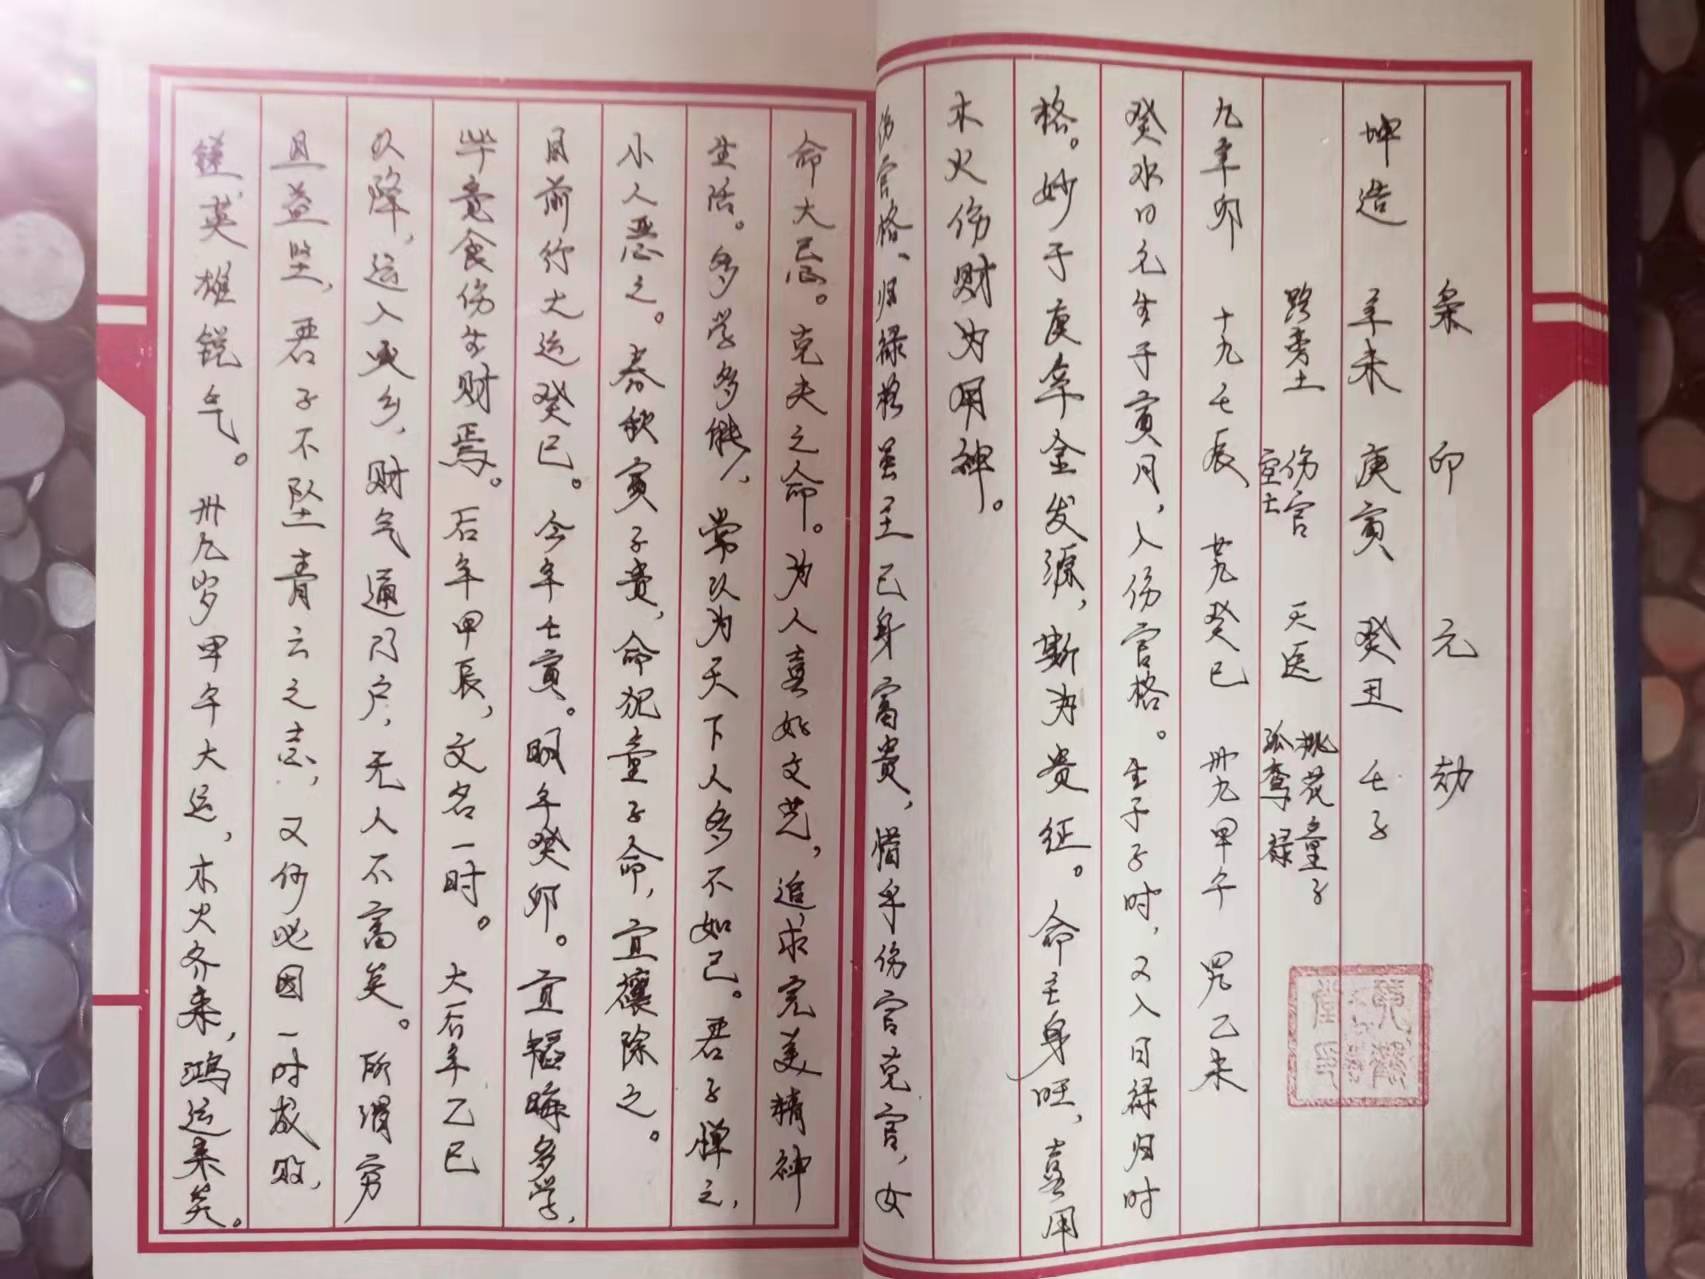 枭 印 元 劫
坤造 辛未 庚寅 癸丑 壬子
路旁土 伤官 天医 桃花童子
空亡 孤鸾 禄
九辛卯 十九壬辰 廿九癸巳 卅九甲午 卌九乙未
癸水日元生于寅月，入伤官格。生于子时，又入日禄归时
格。妙于庚辛金发源，斯为贵征。命主身旺，喜用
木火伤财为用神。
伤官格、归禄格差主己身富贵，惜乎伤官克官，女
命大忌。克夫之命。为人喜好文艺，追求完美精神
生活。多学多能，常以为天下人多不如己。君子惮之，
小人恶之。春秋寅子贵，命犯童子命，宜禳除之。
目前行大运癸巳。今年壬寅。明年癸卯。宜韬晦多学，
毕竟食伤生财焉。后年甲辰，文名一时。大后年乙巳
又降，运入火乡，财气通门户，无人不富矣。所谓穷
且益坚，君子不坠青云之志，又何必因一时成败，
镁英雄锐气。卅九岁甲午大运，木火齐来，鸿运来矣。